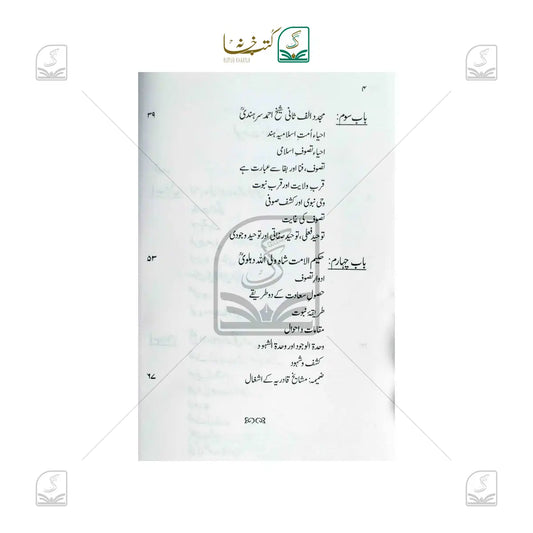 کتب خانہ
۴
باب سوم: مجدد الف ثانی شیخ احمد سرہندیؒ ۳۹
احیاء اُمت اسلامیہ ہند
احیاء تصوف اسلامی
تصوف، فنا اور بقا سے عبارت ہے
قرب ولایت اور قرب نبوت
وحی نبوی اور کشف صوفی
تصوف کی غایت
توحید فعلی، توحید صفاتی اور توحید وجودی
باب چہارم: حکیم الامت شاہ ولی اللہ دہلویؒ ۵۳
ادوار تصوف
حصول سعادت کے دو طریقے
طریقۂ نبوت
مقامات و احوال
وحدۃ الوجود اور وحدۃ الشہود
کشف و شہود
ضمیمہ: مشایخ قادریہ کے اشغال ۶۷